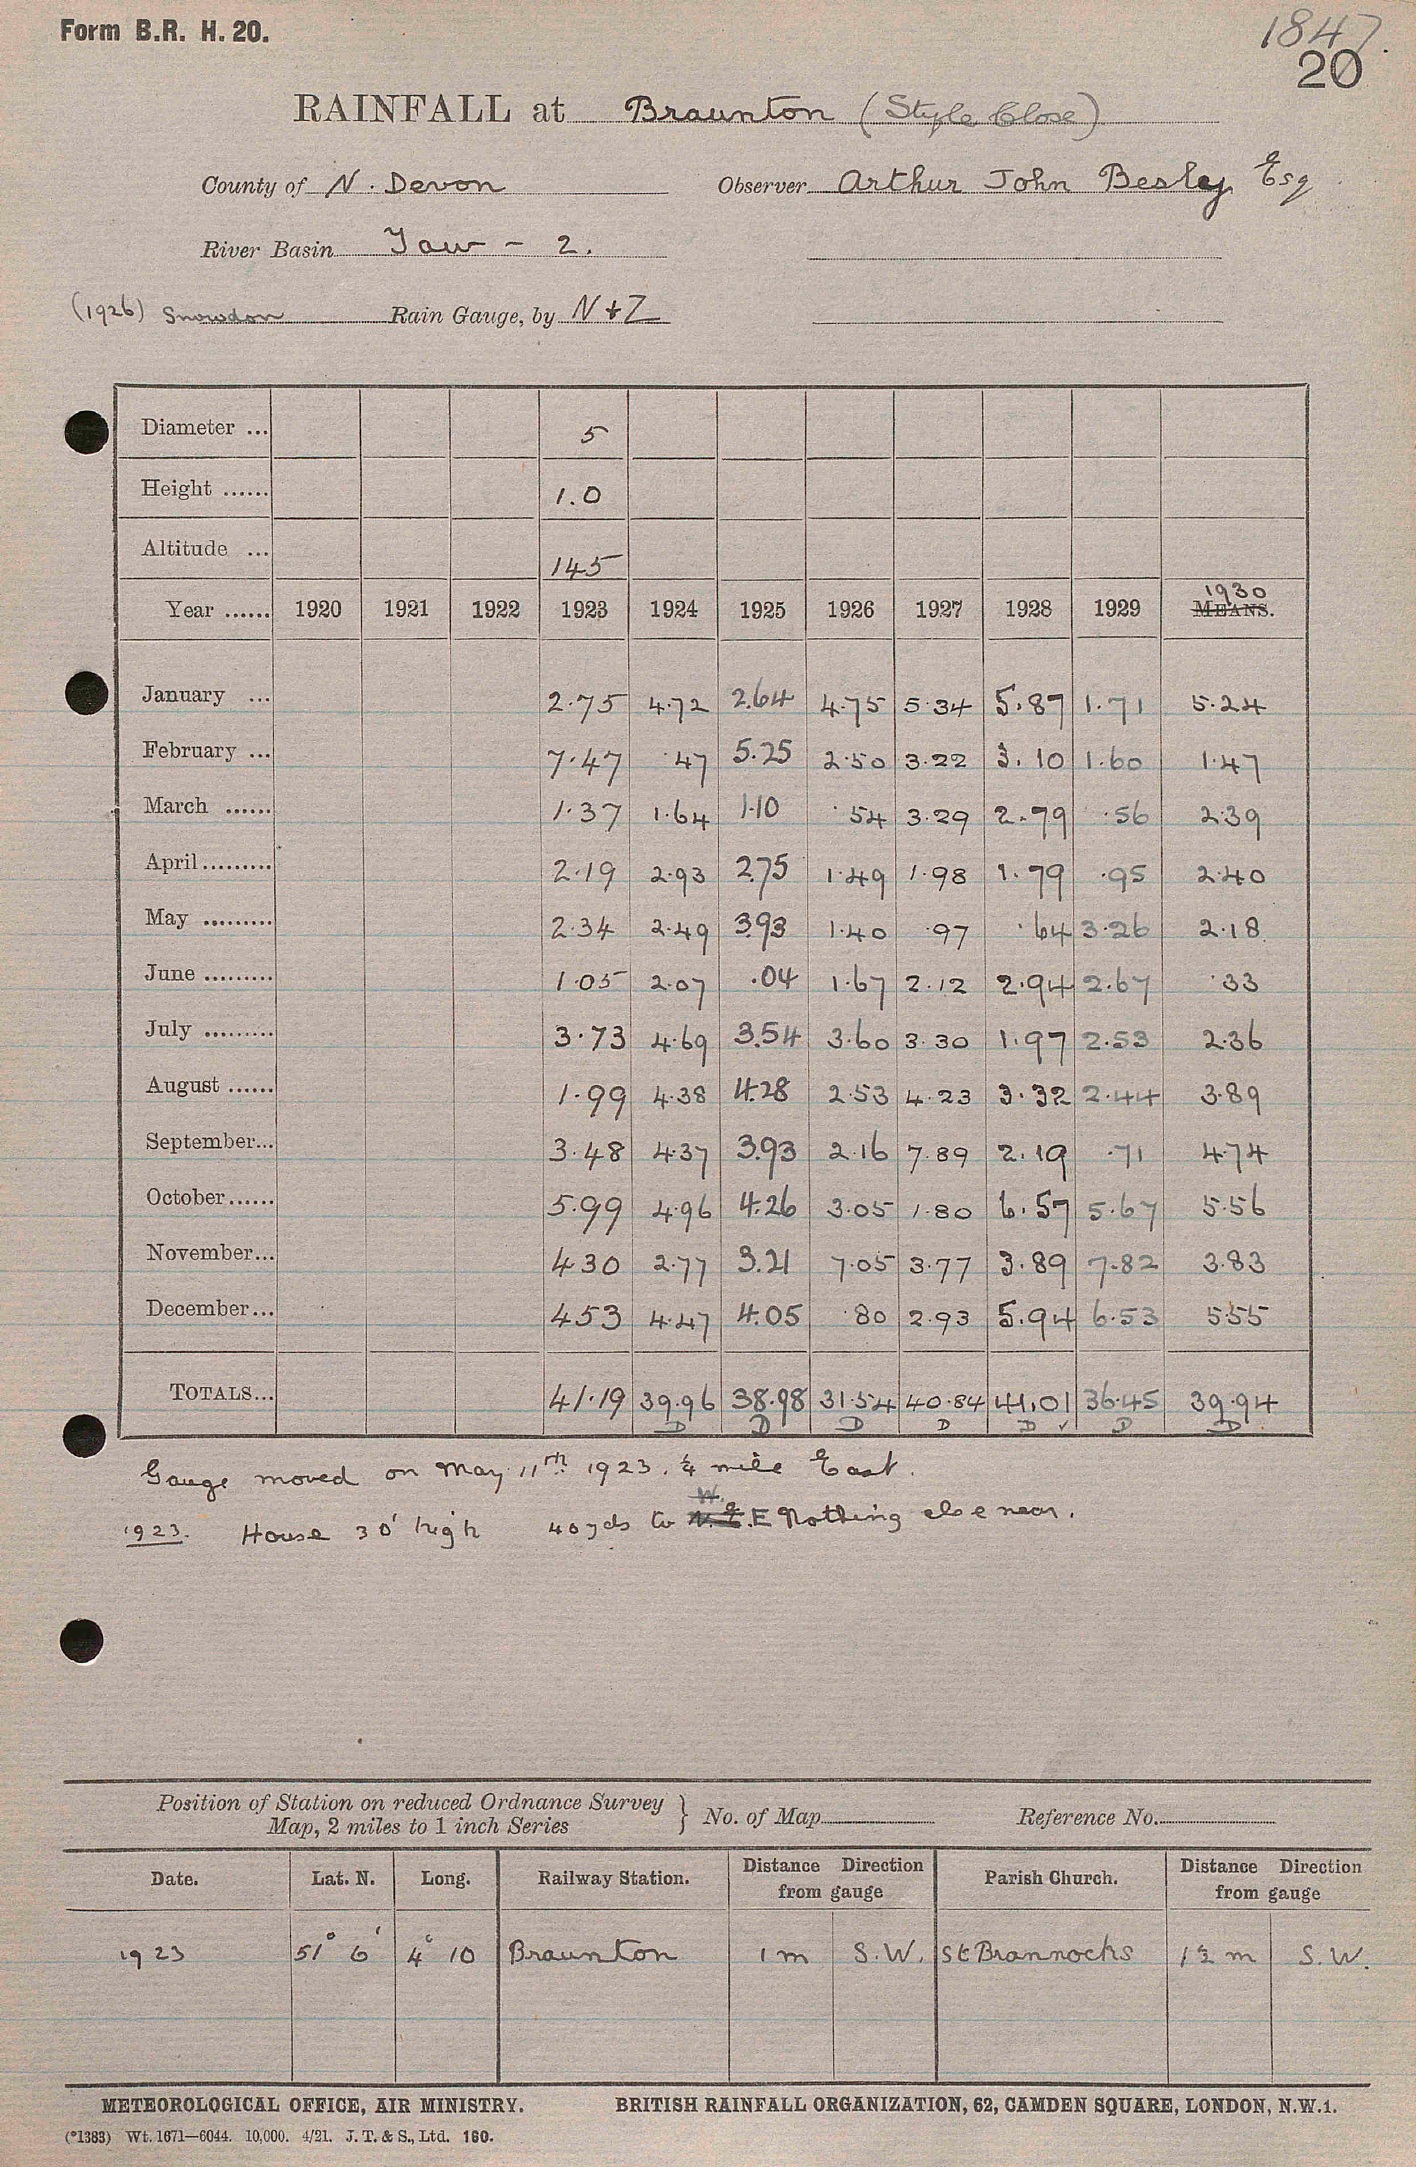 Form B.R. H. 20.
1847.
20
RAINFALL at Braunton (Style Close)
County of N. Devon Observer Arthur John Besley Esq
River Basin Taw - 2.
(1926) Snowdon Rain Gauge, by N & Z
Diameter ... 5
Height ...... 1.0
Altitude ... 145
1930
Year ...... 1920 1921 1922 1923 1924 1925 1926 1927 1928 1929 MEANS.
January ... 2.75 4.72 2.64 4.75 5.34 5.87 1.71 5.24
February ... 7.47 .47 5.25 2.50 3.22 3.10 1.60 1.47
March ...... 1.37 1.64 1.10 .54 3.29 2.79 .56 2.39
April......... 2.19 2.93 2.75 1.49 1.98 1.79 .95 2.40
May ......... 2.34 2.49 3.93 1.40 .97 .64 3.26 2.18
June ......... 1.05 2.07 .04 1.67 2.12 2.94 2.67 .33
July ......... 3.73 4.69 3.54 3.60 3.30 1.97 2.53 2.36
August ...... 1.99 4.38 4.28 2.53 4.23 3.32 2.44 3.89
September... 3.48 4.37 3.93 2.16 7.89 2.19 .71 4.74
October...... 5.99 4.96 4.26 3.05 1.80 6.57 5.67 5.56
November... 4.30 2.77 3.21 7.05 3.77 3.89 7.82 3.83
December... 4.53 4.47 4.05 .80 2.93 5.94 6.53 5.55
TOTALS... 41.19 39.96 38.98 31.54 40.84 41.01 36.45 39.94
D D D D D ✓ D D
Gauge moved on May 11th 1923. ¼ mile East.
1923. House 30' high 40 yds to W. E Nothing else near.
Position of Station on reduced Ordnance Survey } No. of Map Reference No.
Map, 2 miles to 1 inch Series
Date. Lat. N. Long. Railway Station. Distance Direction Parish Church. Distance Direction
from gauge from gauge
1923 51° 6' 4° 10 Braunton 1 m S.W. St Brannocks 1½ m S.W.
METEOROLOGICAL OFFICE, AIR MINISTRY. BRITISH RAINFALL ORGANIZATION, 62, CAMDEN SQUARE, LONDON, N.W.1.
(*1383) Wt. 1671—6044. 10,000. 4/21. J. T. & S., Ltd. 160.